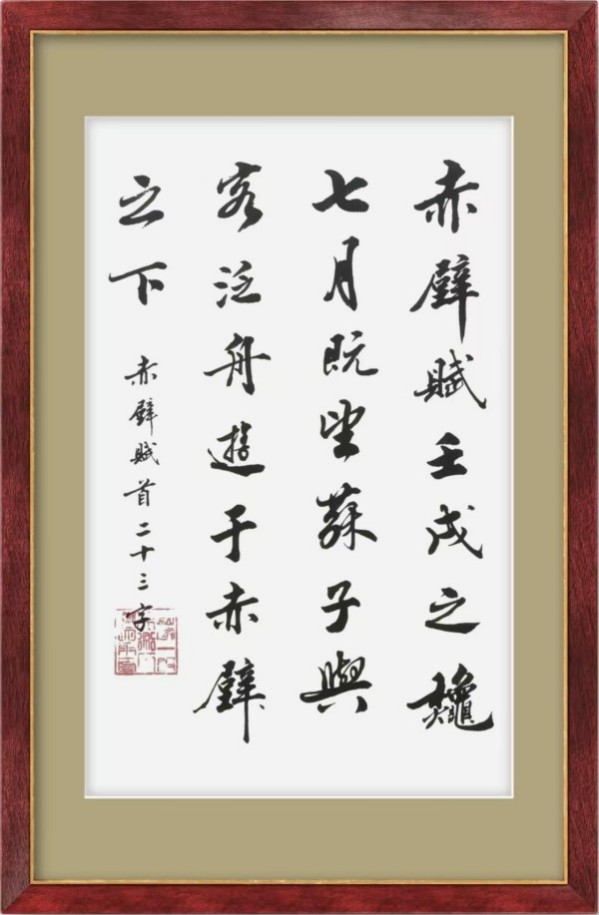 赤壁賦壬戌之龝
七月既望蘇子與
客泛舟遊于赤壁
之下
赤壁賦首二十三字